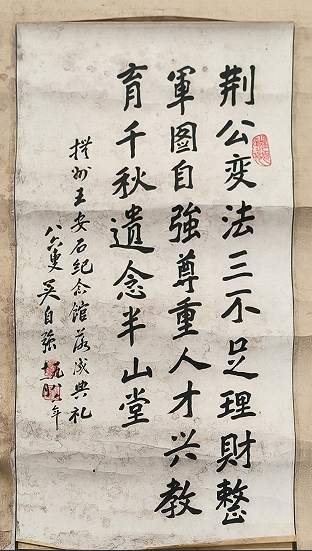 荆公变法三不足理财整
軍图自強尊重人才兴教
育千秋遺念半山堂
撫州王安石纪念館落成典礼
八六叟吴自強